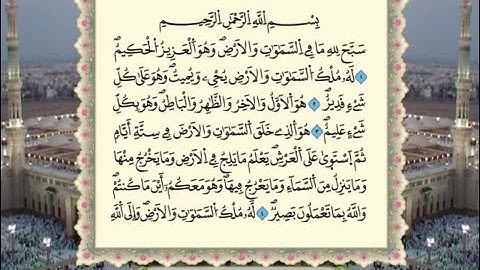 بِسْمِ اللَّهِ الرَّحْمٰنِ الرَّحِيمِ
سَبَّحَ لِلّٰهِ مَا فِي السَّمٰوَاتِ وَالْاَرْضِۚ وَهُوَ الْعَزِيزُ الْحَكِيمُ
﴿١﴾ لَهُ مُلْكُ السَّمٰوَاتِ وَالْاَرْضِۚ يُحْيٖ وَيُمِيتُۚ وَهُوَ عَلٰى كُلِّ
شَيْءٍ قَدِيرٌ ﴿٢﴾ هُوَ الْاَوَّلُ وَالْاٰخِرُ وَالظَّاهِرُ وَالْبَاطِنُۚ وَهُوَ بِكُلِّ
شَيْءٍ عَلِيمٌ ﴿٣﴾ هُوَ الَّذِي خَلَقَ السَّمٰوَاتِ وَالْاَرْضَ فِي سِتَّةِ اَيَّامٍ
ثُمَّ اسْتَوٰى عَلَى الْعَرْشِۜ يَعْلَمُ مَا يَلِجُ فِي الْاَرْضِ وَمَا يَخْرُجُ مِنْهَا
وَمَا يَنْزِلُ مِنَ السَّمَٓاءِ وَمَا يَعْرُجُ فِيهَاۜ وَهُوَ مَعَكُمْ اَيْنَ مَا كُنْتُمْۜ
وَاللّٰهُ بِمَا تَعْمَلُونَ بَصِيرٌ ﴿٤﴾ لَهُ مُلْكُ السَّمٰوَاتِ وَالْاَرْضِۜ وَاِلَى اللّٰهِ